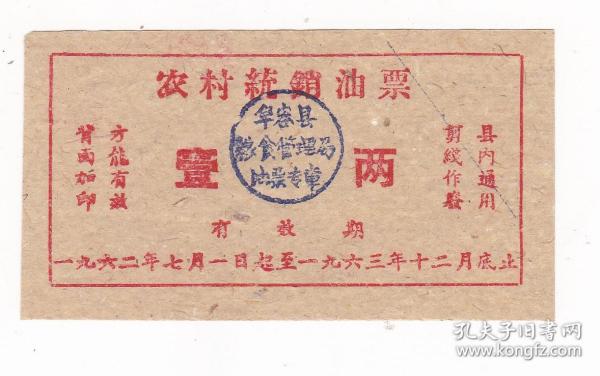 农村統銷油票
县内通用
剪綫作廢
壹两
方能有效
背面加印
牟密县
粮食管理局
油票专章
有效期
一九六二年七月一日起至一九六三年十二月底止
孔夫子旧书网
www.kongfz.com